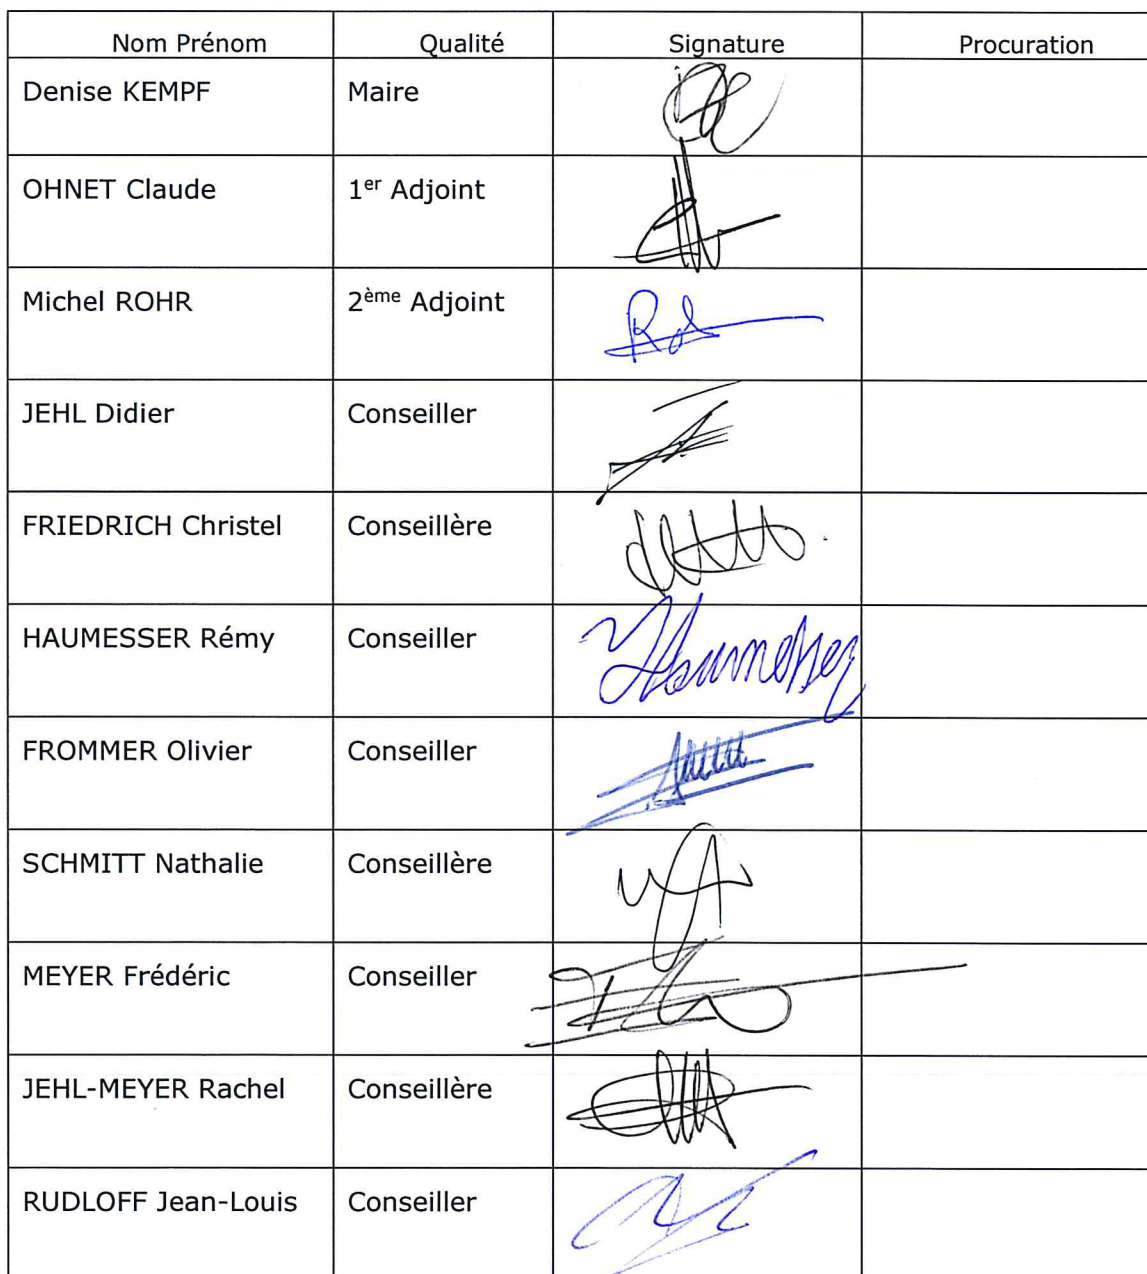 Nom Prénom Qualité Signature Procuration
Denise KEMPF Maire
OHNET Claude 1er Adjoint
Michel ROHR 2ème Adjoint
JEHL Didier Conseiller
FRIEDRICH Christel Conseillère
HAUMESSER Rémy Conseiller
FROMMER Olivier Conseiller
SCHMITT Nathalie Conseillère
MEYER Frédéric Conseiller
JEHL-MEYER Rachel Conseillère
RUDLOFF Jean-Louis Conseiller